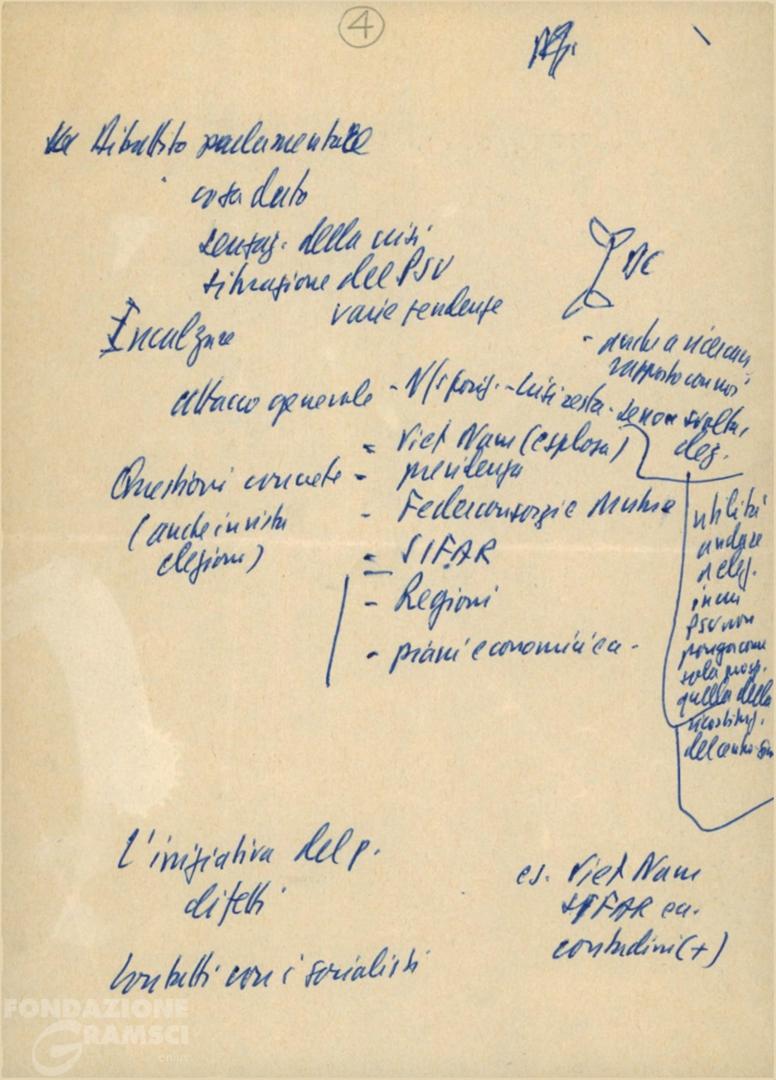 4
Dibattito parlamentare
cosa dato
sensaz. della crisi
situazione del PSU
varie tendenze
Incalzare
DC
- anche a ricercare
rapporto con noi
attacco generale - crisi resta - se non svolta,
elez.
= Viet Nam (esplosa)
Questioni concrete - previdenza
(anche in vista
elezioni)
- Federconsorzi e Mutue
= SIFAR
- Regioni
- piani economici ecc.
utilità
andare
a elez.
in cui
PSU non
ponga come
sola prosp.
quella della
ricostituz.
del centro-sin
L'iniziativa del p.
difetti
es. Viet Nam
SIFAR ecc.
contadini (+)
Contatti con i socialisti
FONDAZIONE
GRAMSCI
onlus